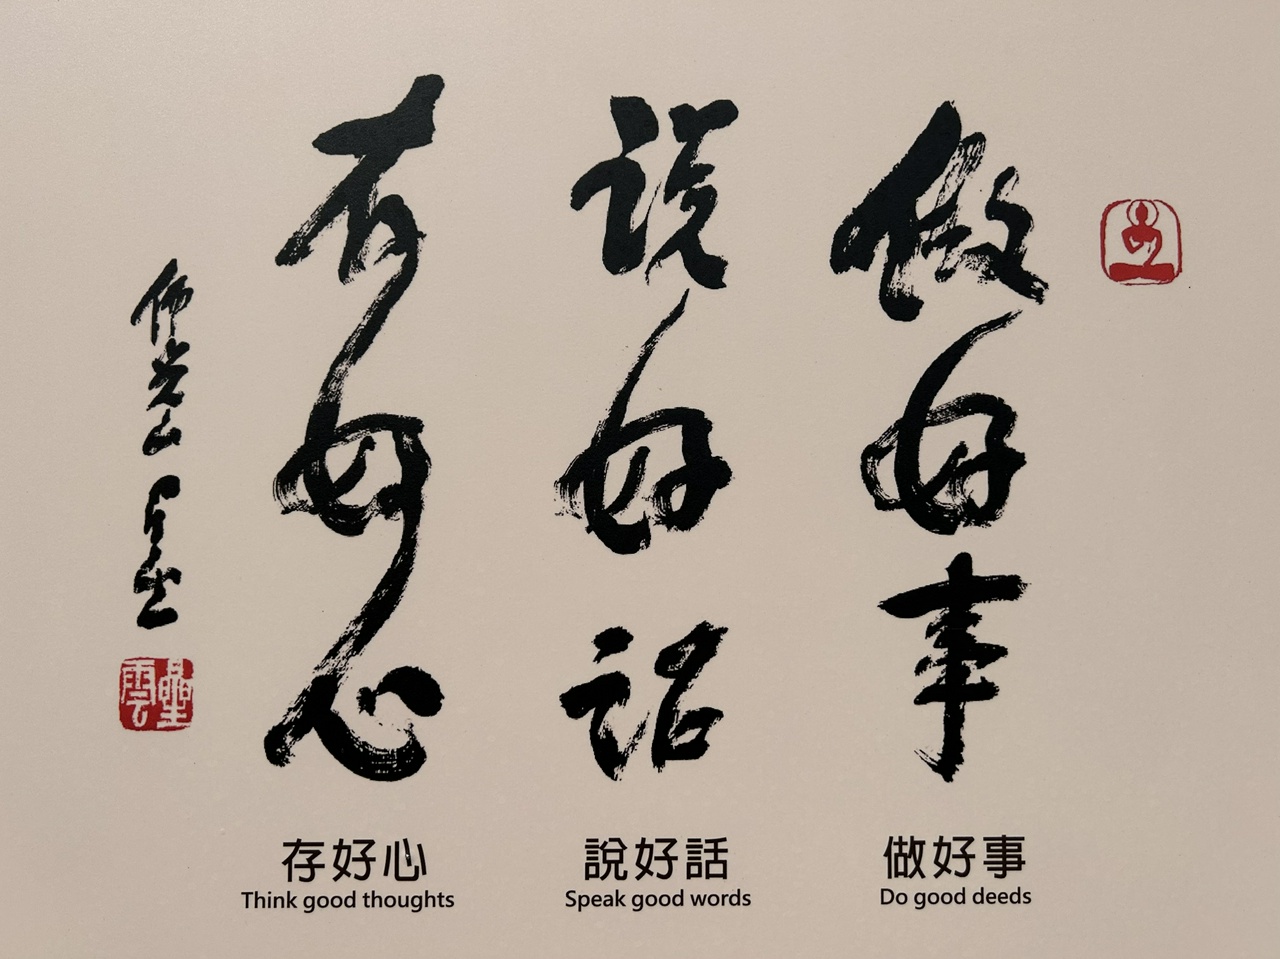 做好事
說好話
存好心
佛光山 星雲
星雲
存好心
Think good thoughts
說好話
Speak good words
做好事
Do good deeds